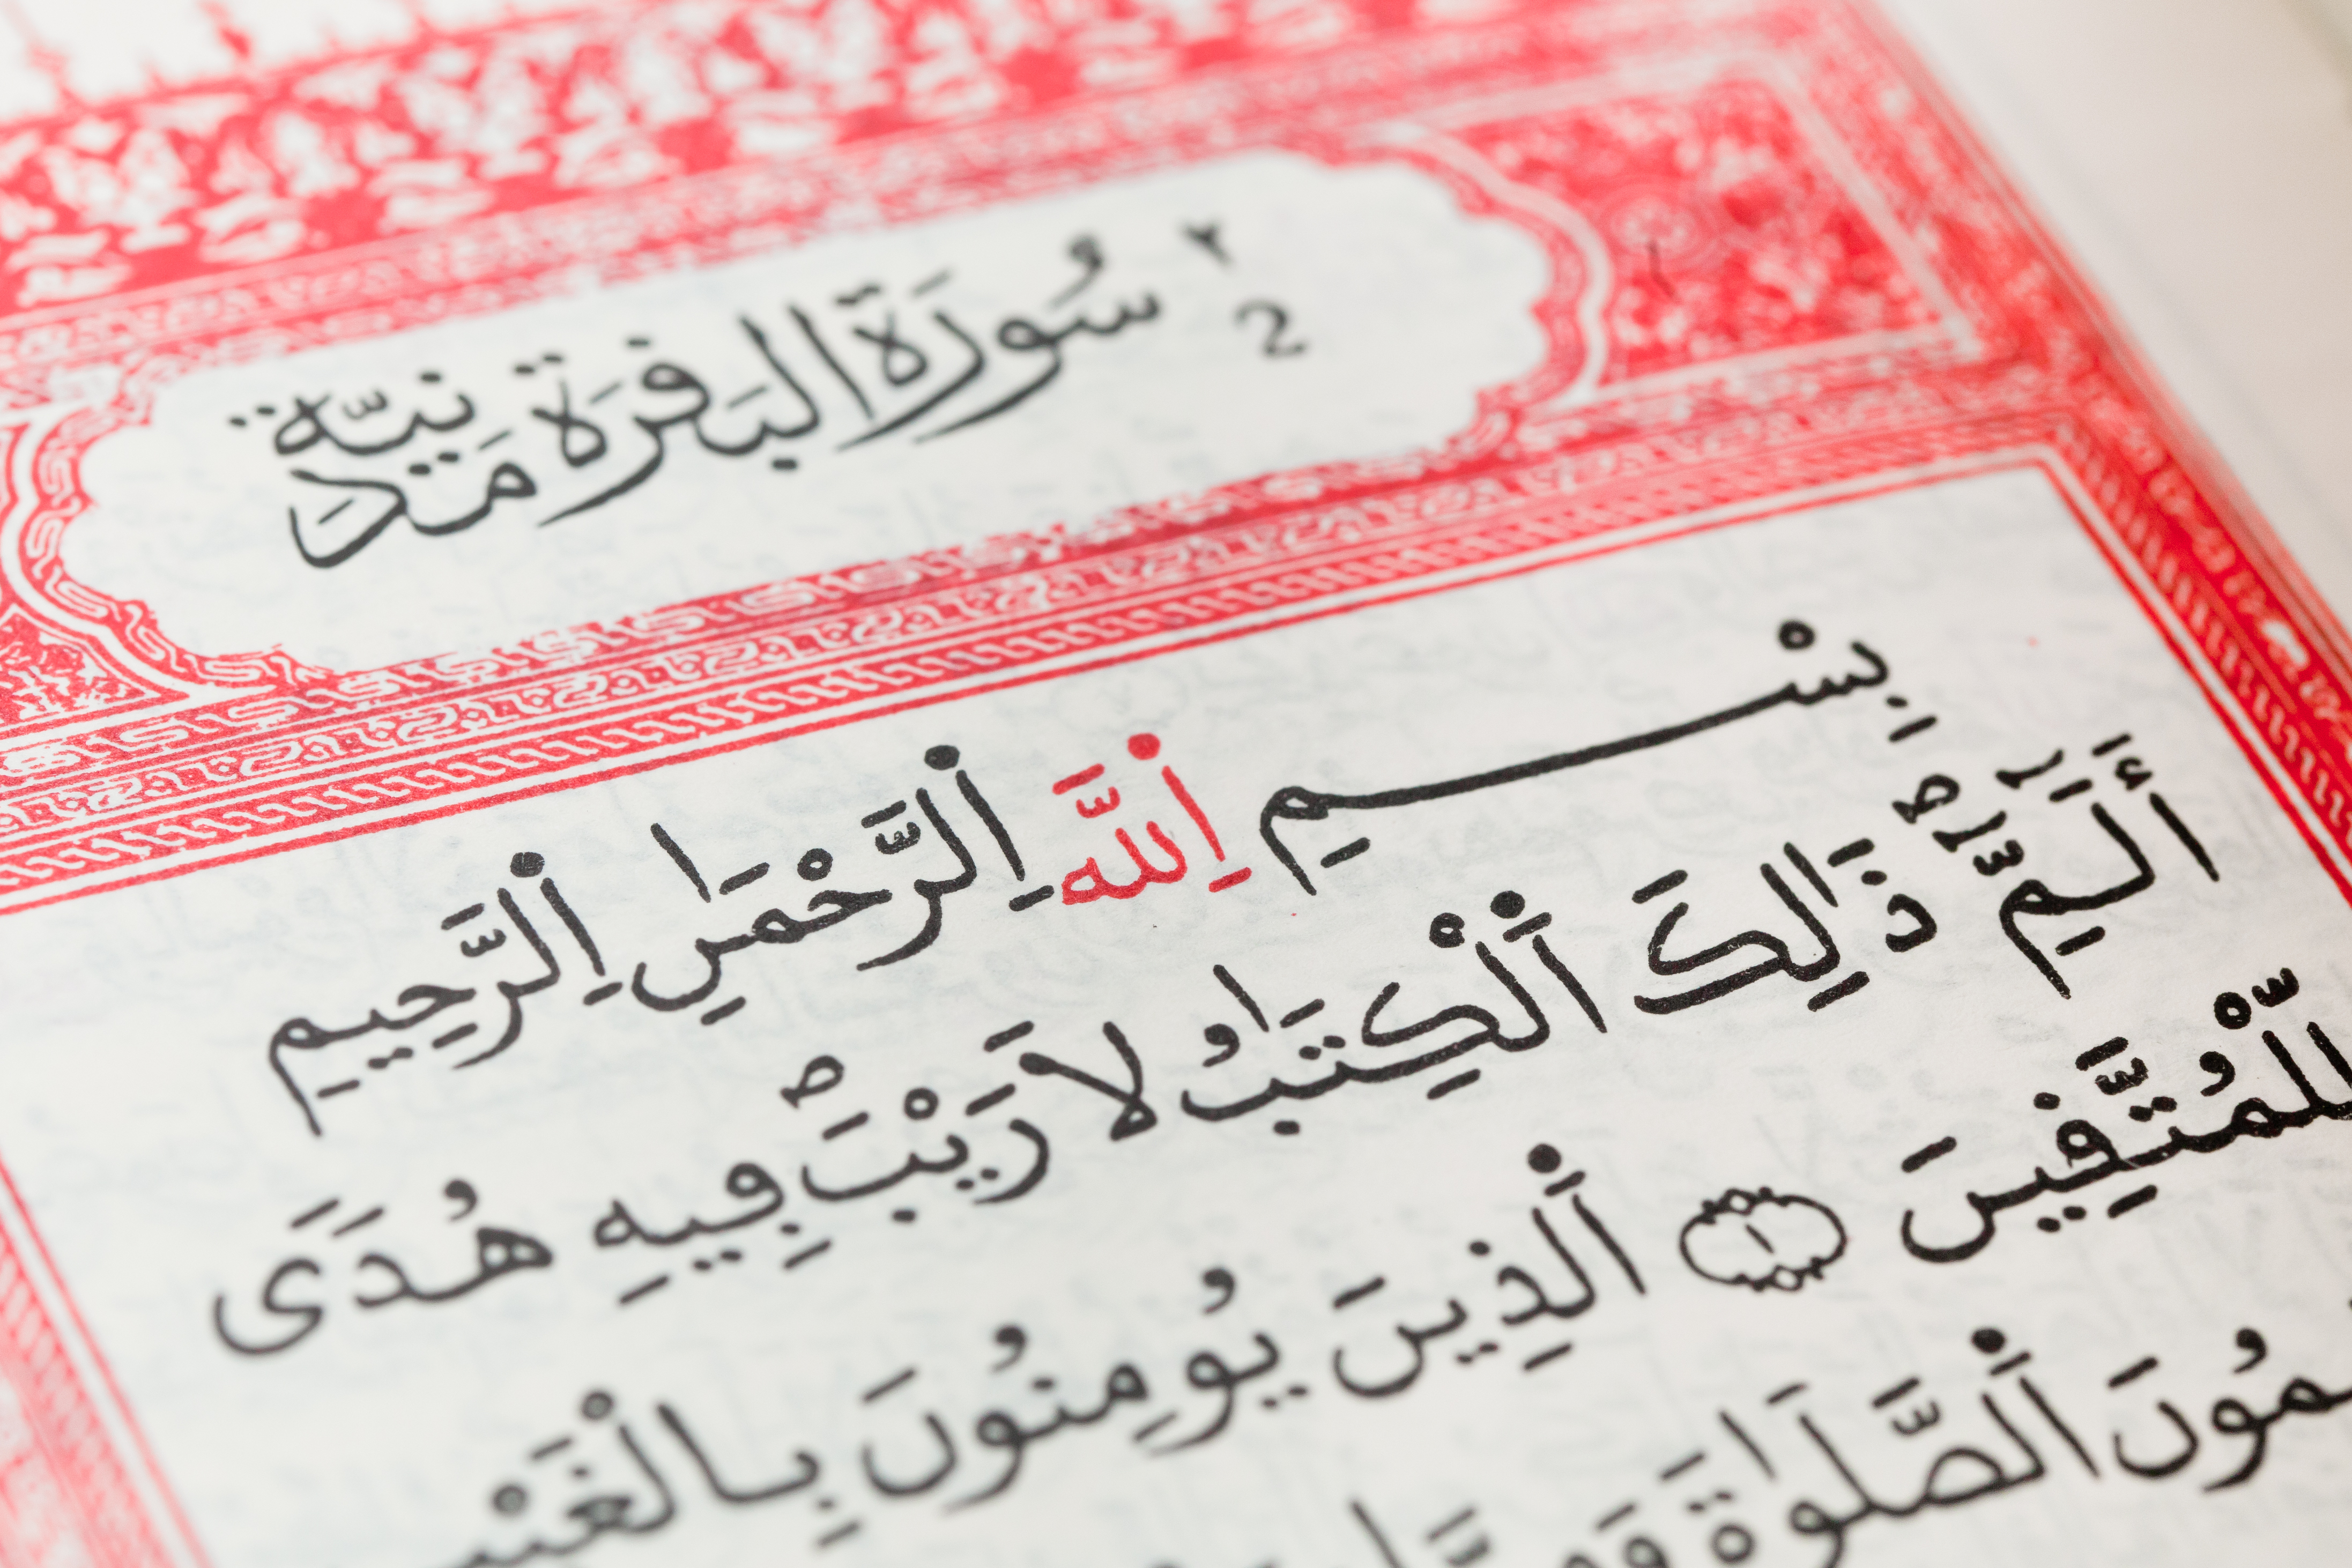 ٢
2 سُورَةُ البَقَرَة مَدَنِيَّة
بِسْمِ اِللَّهِ اِلرَّحْمَٰنِ اِلرَّحِيمِ
أَلَٓمِّٓ ذَٰلِكَ اَلْكِتَٰبُ لَا رَيْبَ فِيهِ هُدىً
لِّلْمُتَّقِينَ ١ اَلذِينَ يُومِنُونَ بِالْغَيْبِ
اَلصَّلَوٰةَ